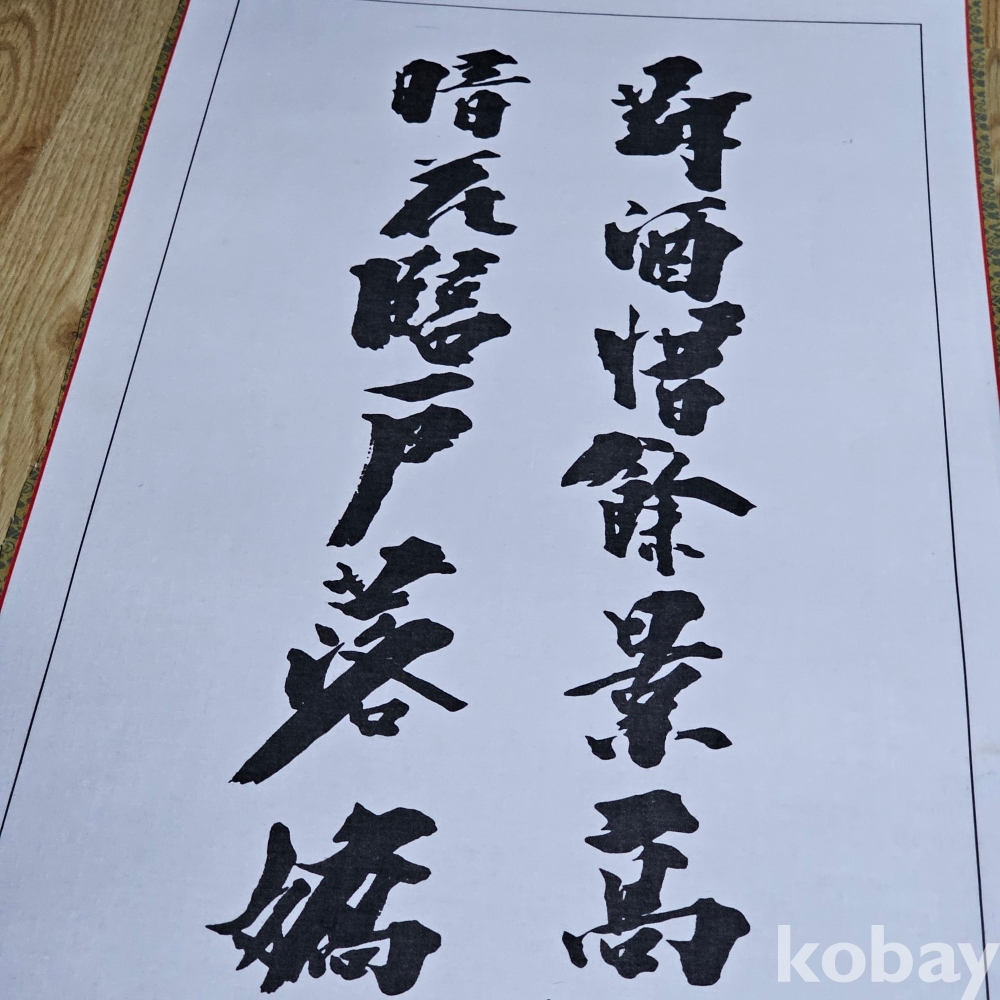 對酒惜餘景高
暗花臨戶落嬌
kobay